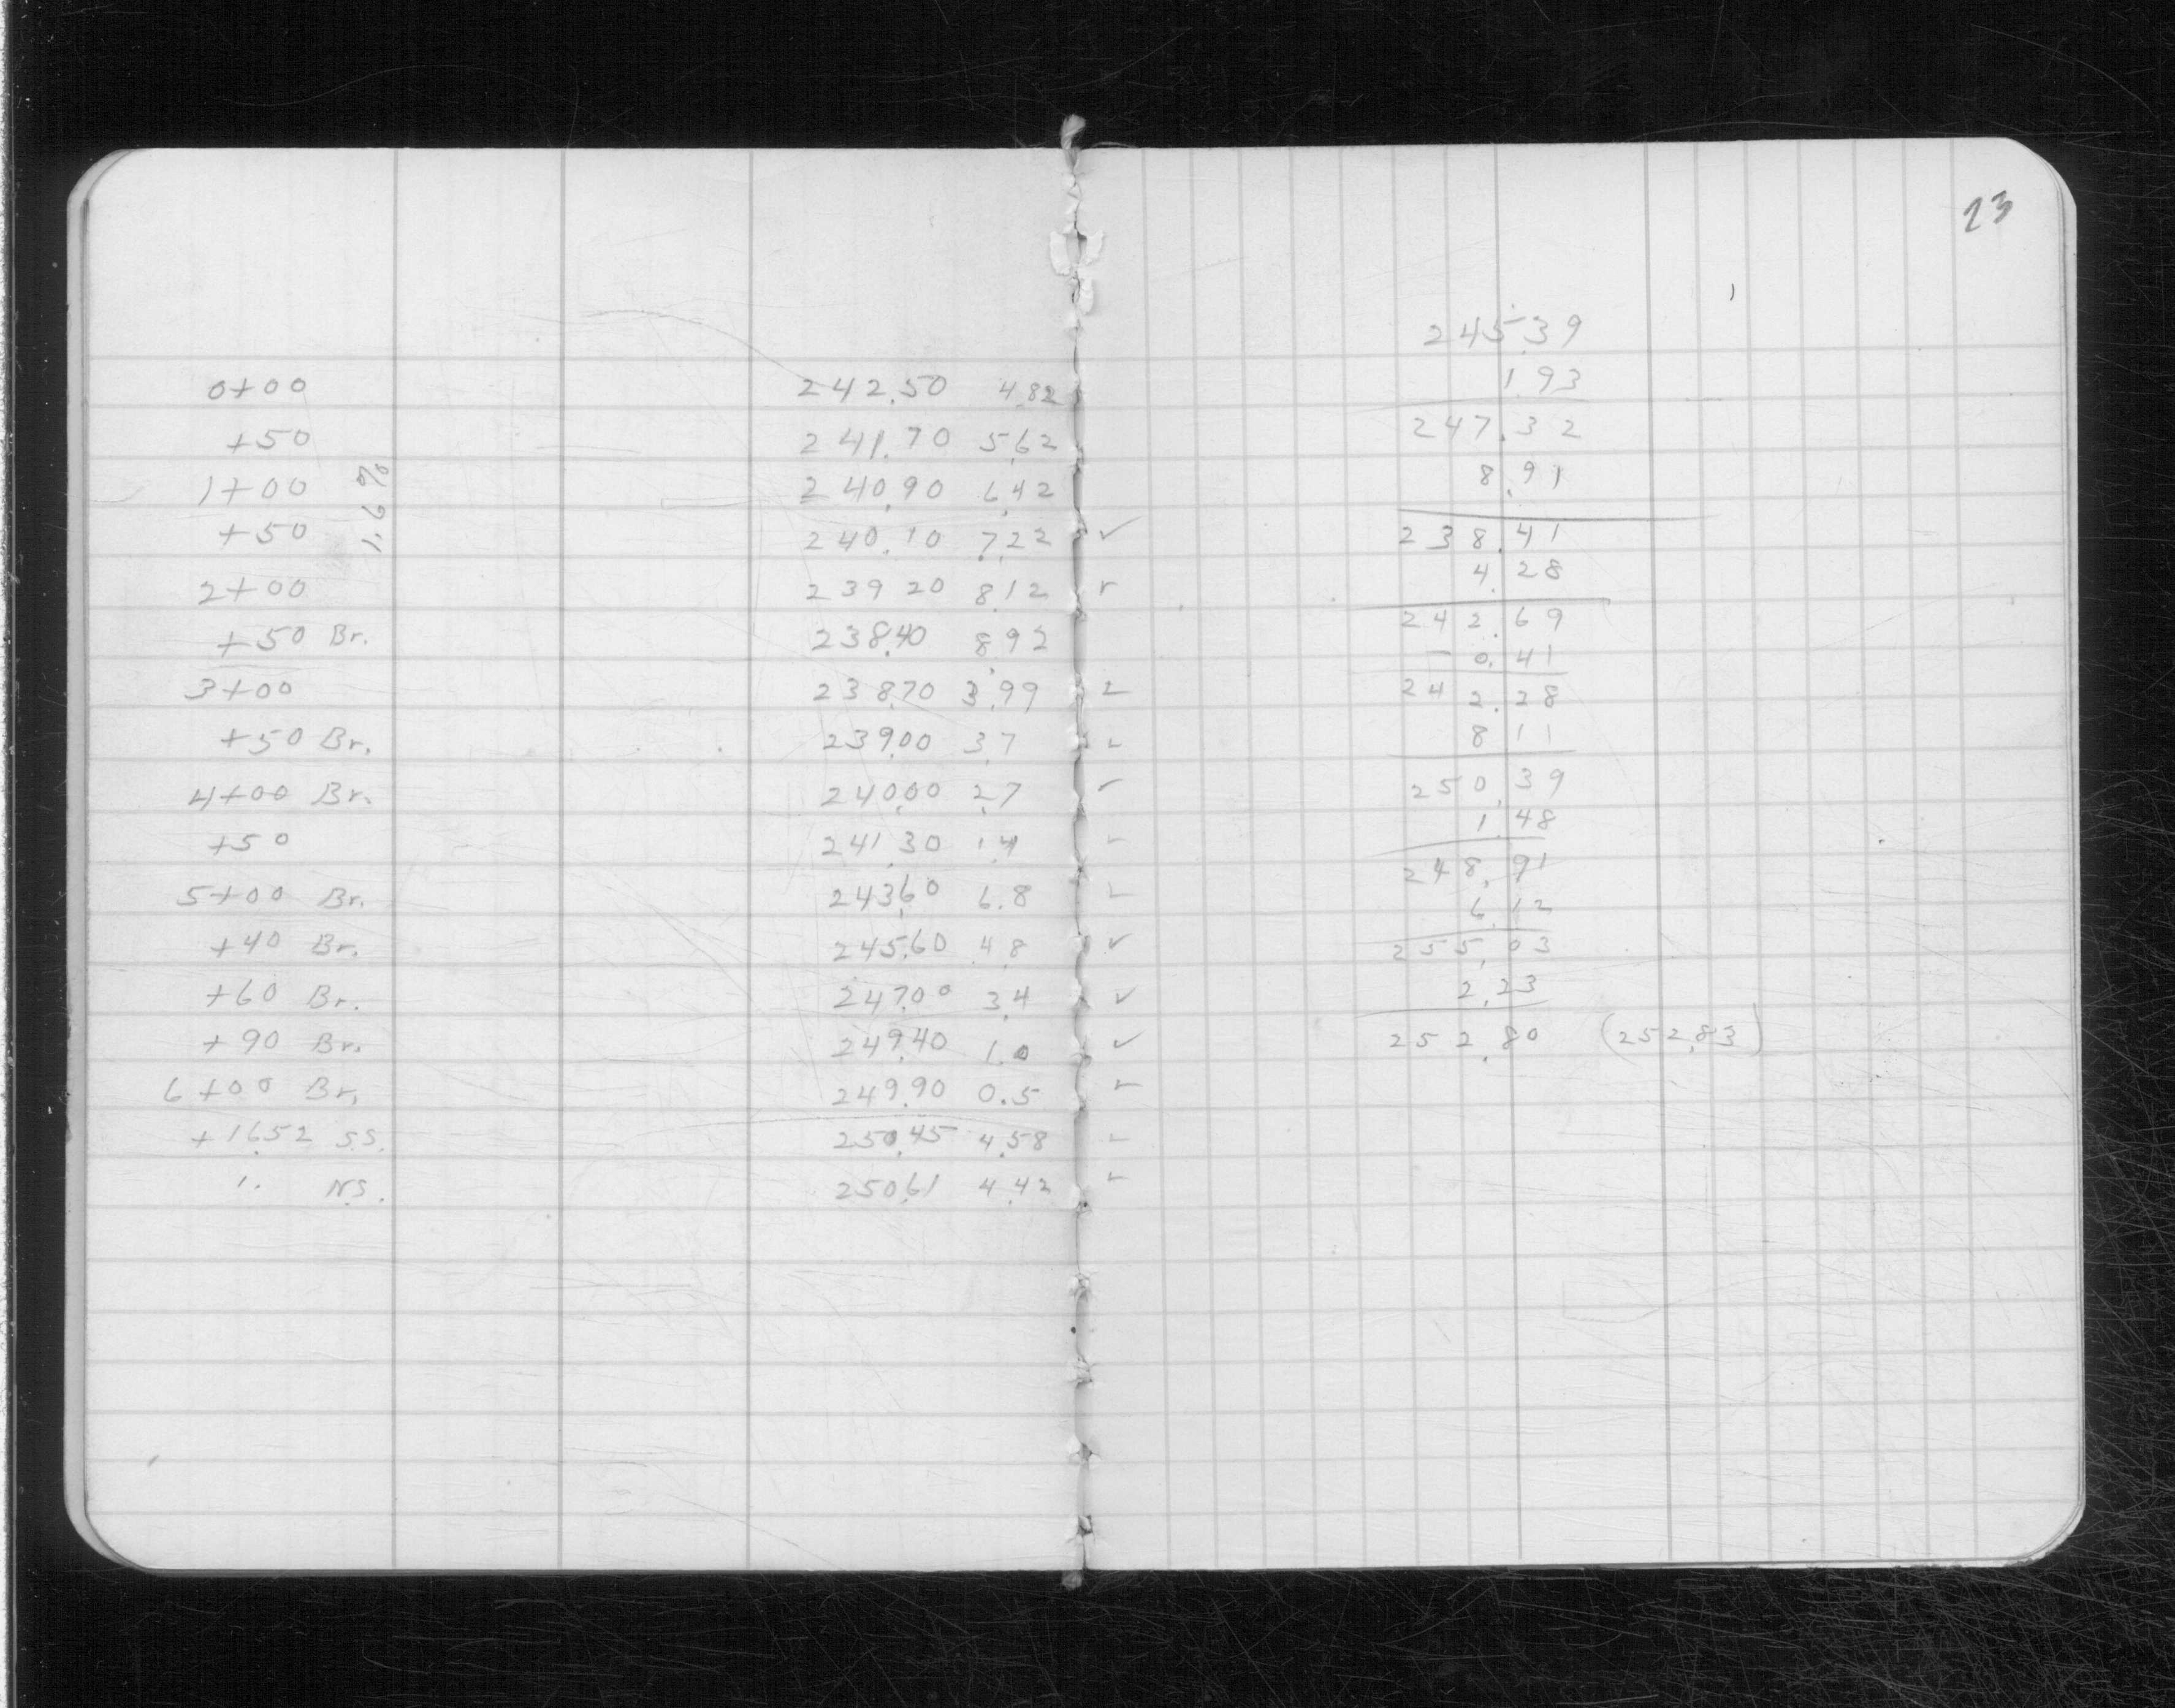 23
0+00 242.50 4.82
+50 241.70 5.62
1+00 240.90 6.42
1.6%
+50 240.10 7.22 ✓
2+00 239 20 8.12 ✓
+50 Br. 238.40 8.92
3+00 238.70 3.99 ✓
+50 Br. 239.00 3.7 ✓
4+00 Br. 240.00 2.7 ✓
+50 241.30 1.4 ✓
5+00 Br. 243.60 6.8 ✓
+40 Br. 245.60 4.8 ✓
+60 Br. 247.00 3.4 ✓
+90 Br. 249.40 1.0 ✓
6+00 Br. 249.90 0.5 ✓
+16.52 S.S. 250.45 4.58 ✓
". N.S. 250.61 4.42 ✓
245.39
1.93
247.32
8.91
238.41
4.28
242.69
- 0.41
242.28
8 11
250.39
1.48
248.91
6.12
255.03
2.23
252.80 (252.83)